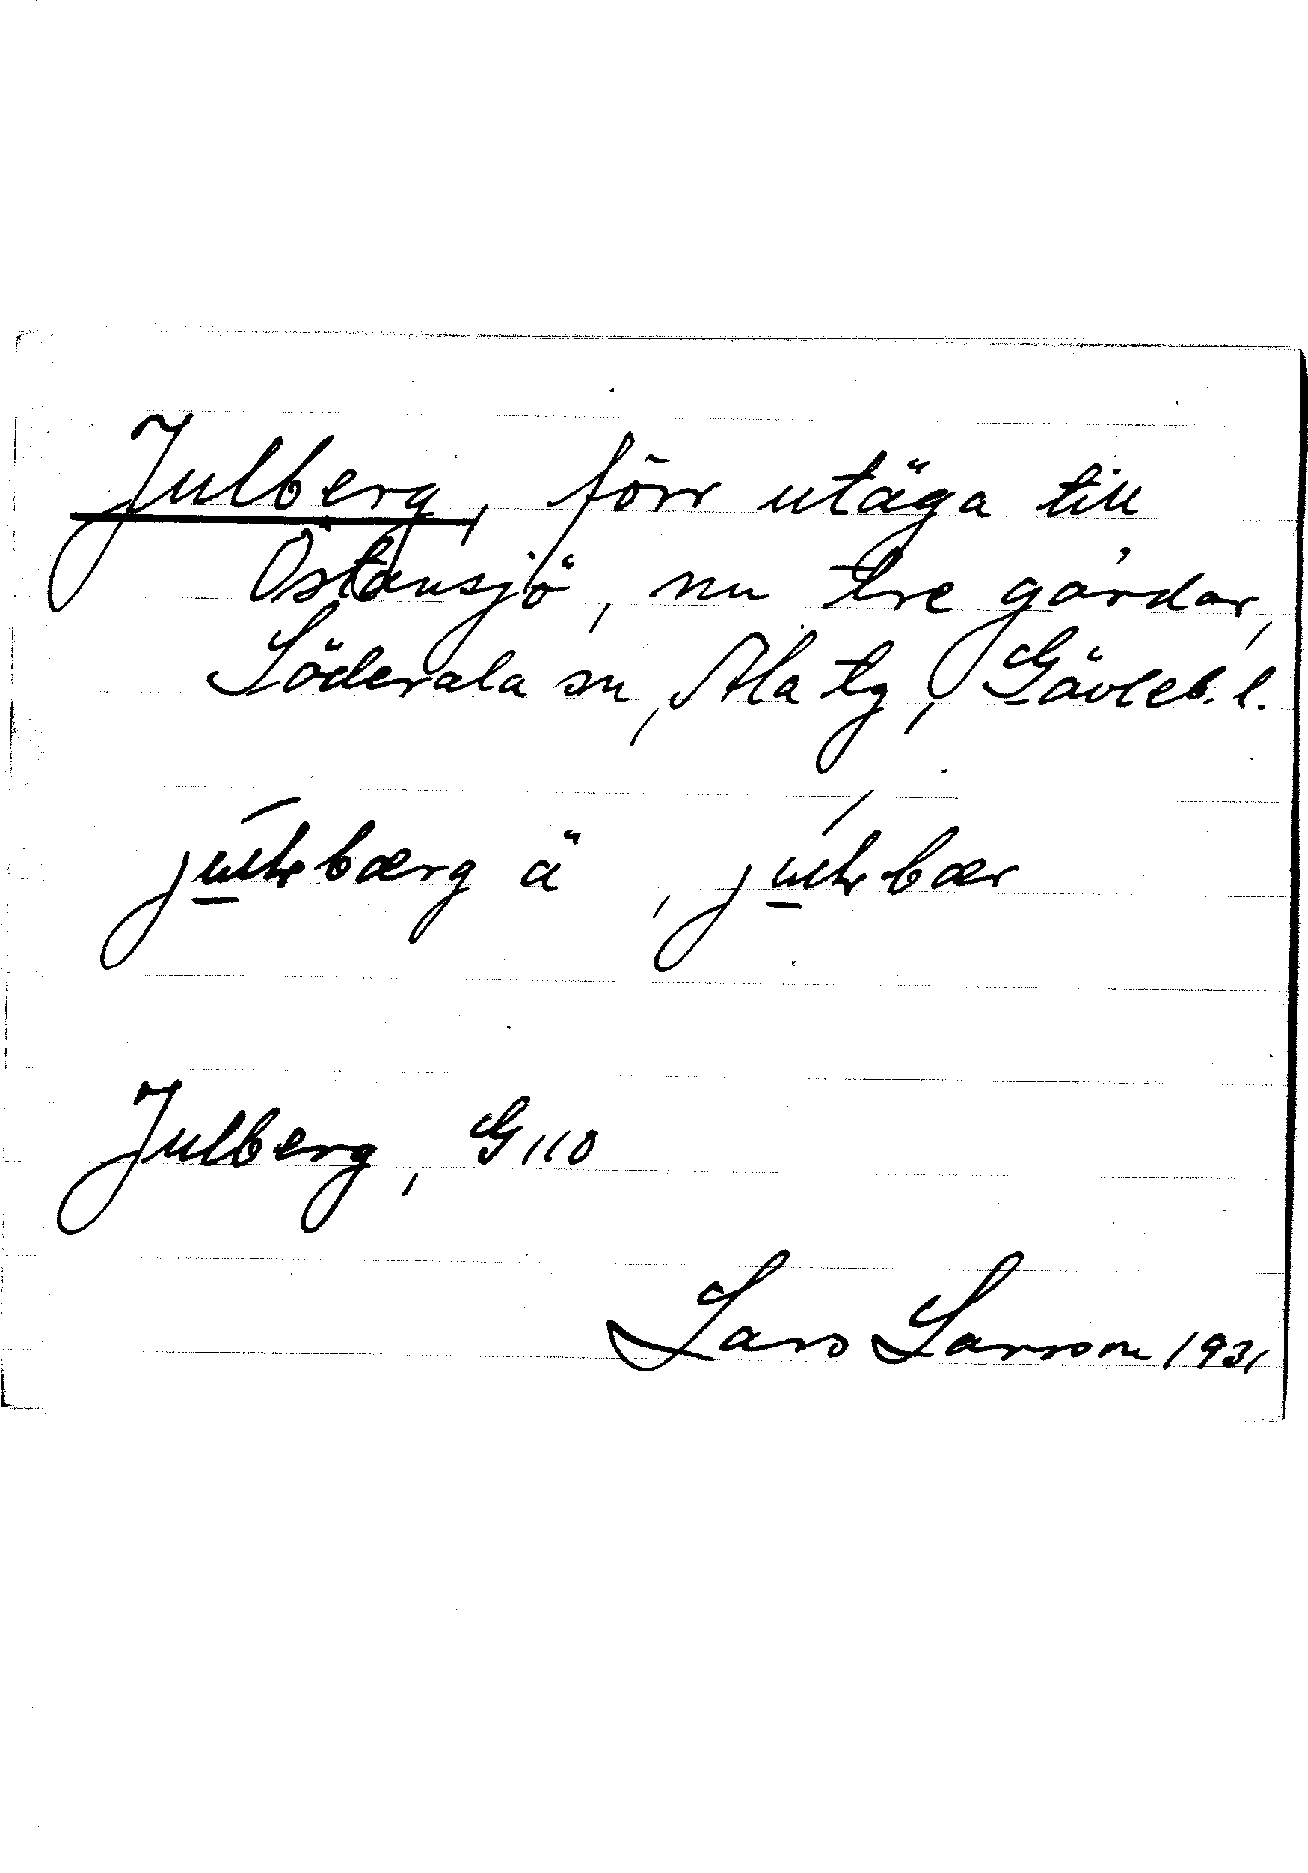 Julberg, förr utäga till
Östansjö, nu tre gårdar,
Söderala sn, Ala tg, Gävleb. l.
ä
Julberg, G 110
Lars Larsson 1931